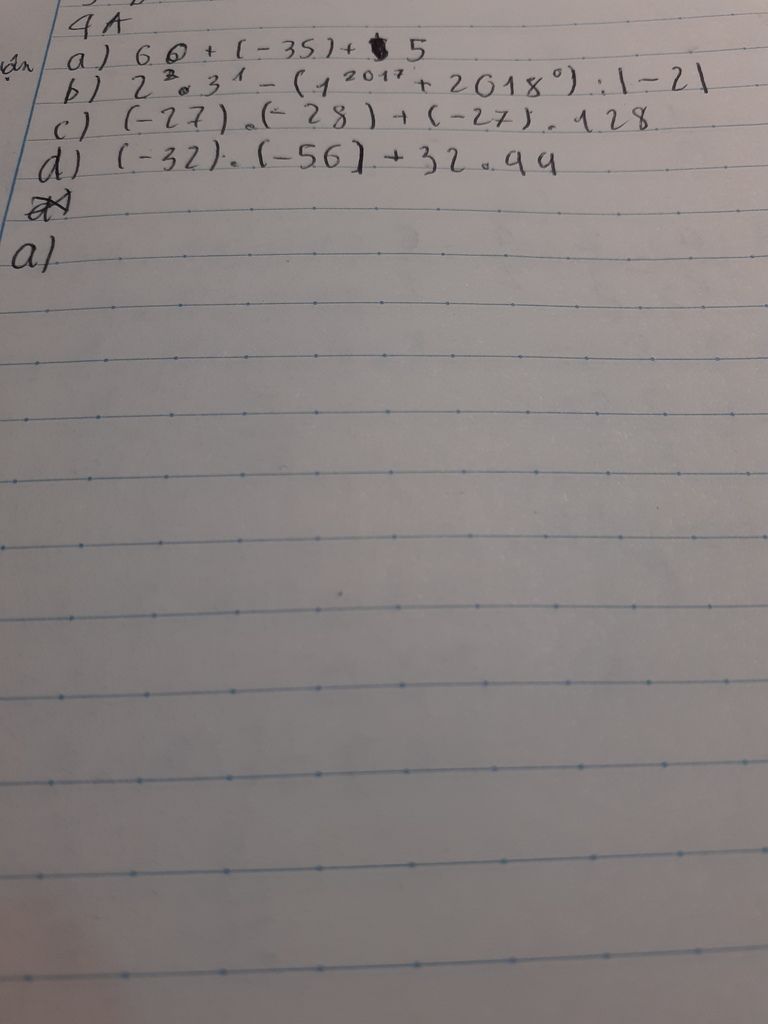 4A
a) 60 + (-35) + 5
b) 2² . 3¹ - (1²⁰¹⁷ + 2018⁰) : |-2|
c) (-27) . (-28) + (-27) . 128
d) (-32) . (-56) + 32 . 44
a)